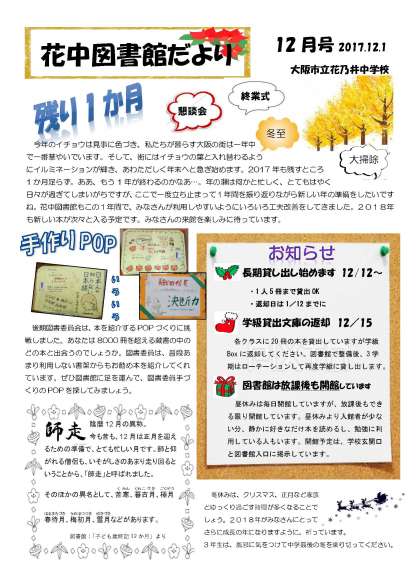 花中図書館だより
12月号 2017.12.1
大阪市立花乃井中学校
残り1か月
懇談会
終業式
冬至
大掃除
今年のイチョウは見事に色づき、私たちが暮らす大阪の街は一年中
で一番華やいでいます。そして、街にはイチョウの葉と入れ替わるよう
にイルミネーションが輝き、あわただしく年末へと急ぎ始めます。2017年も残すところ
1か月足らず。ああ、もう1年が終わるのかなあ…。年の瀬は何かと忙しく、とてもはやく
日々が過ぎてしまいがちですが、ここで一度立ち止まって1年間を振り返りながら新しい年の準備をしたいです
ね。花中図書館もこの1年間で、みなさんが利用しやすいようにいろいろ工夫改善をしてきました。2018年
も新しい本が次々と入る予定です。みなさんの来館を楽しみに待っています。
手作りPOP
後期図書委員会は、本を紹介するPOPづくりに挑
戦しました。あなたは8000冊を超える蔵書の中の
どの本と出会うのでしょうか。図書委員は、普段あ
まり利用しない書架からもお勧め本を紹介してくれ
ています。ぜひ図書館に足を運んで、図書委員手づ
くりのPOPを探してみましょう。
師走
陰暦12月の異称。
今も昔も、12月は正月を迎え
るための準備で、とても忙しい月です。師と仰
がれる僧侶も、いそがしさのあまり走り回ると
いうことから、「師走」と呼ばれました。
そのほかの異名として、苦寒、暮古月、極月
春待月、梅初月、雪月などがあります。
図書館:「子ども歳時記12か月」より
お知らせ
長期貸し出し始めます 12/12~
・1人5冊まで貸出OK
・返却日は1/12までに
学級貸出文庫の返却 12/15
各クラスに20冊の本を貸出していますが学級
Boxに返却してください。図書館で整備後、3学
期はローテーションして再度学級に貸し出します。
図書館は放課後も開館しています
昼休みは毎日開館していますが、放課後もでき
る限り開館しています。昼休みより入館者が少な
い分、静かに好きなだけ本を読めるし、勉強に利
用している人もいます。開館予定は、学校玄関口
と図書館入口に掲示しています。
冬休みは、クリスマス、正月など家族
とゆっくり過ごす時間が多くなることで
しょう。2018年がみなさんにとって
さらに成長の年になりますように。祈っています。
3年生は、風邪に気をつけて中学最後の冬を乗り切ってください。